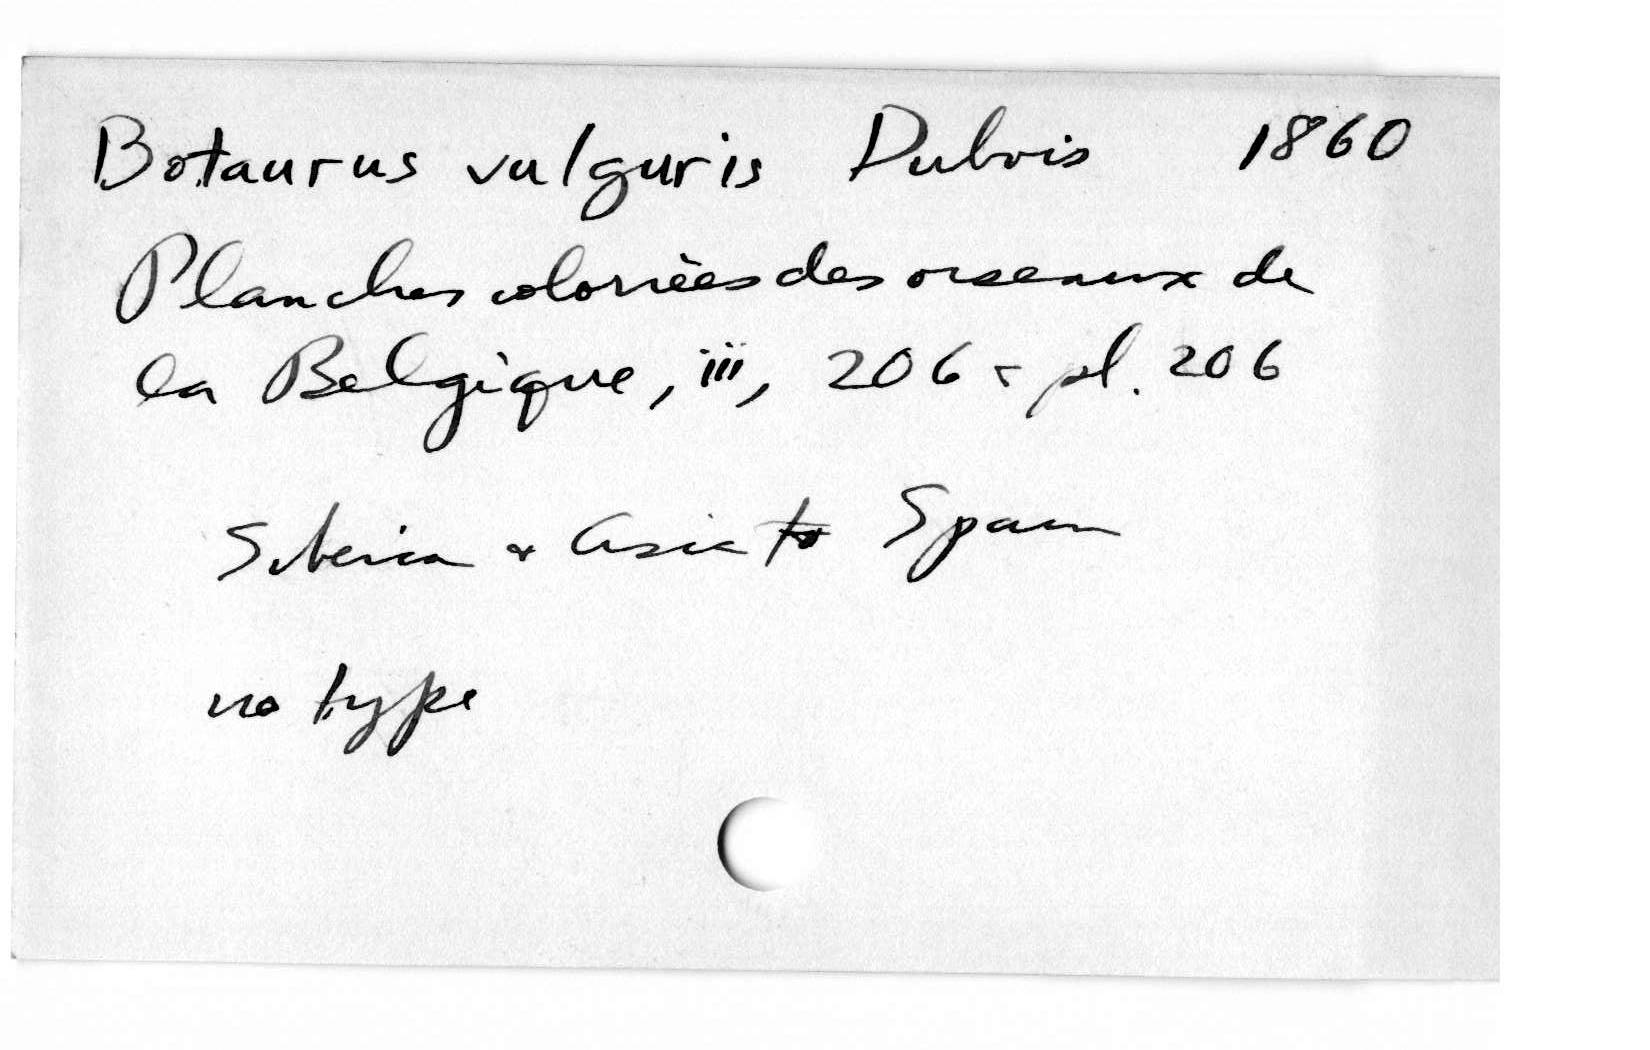 Botaurus vulguris Dubois 1860
Planches colorièes des oiseaux de
la Belgique, iii, 206 + pl. 206
Siberia + Asia to Spain
no type